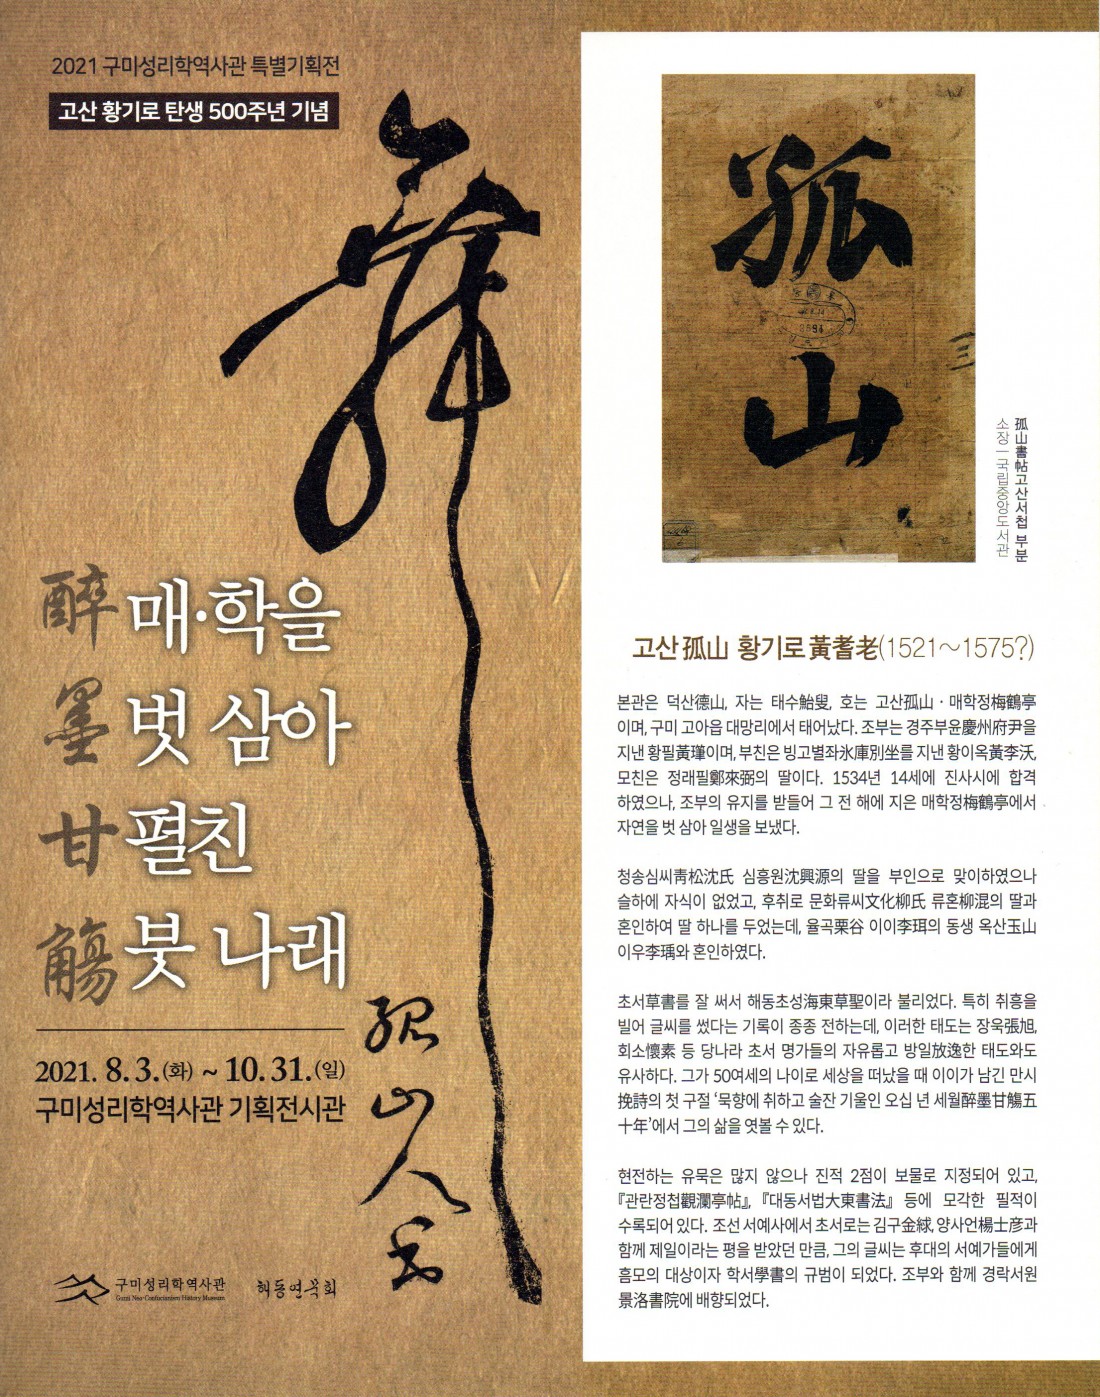 2021 구미성리학역사관 특별기획전
고산 황기로 탄생 500주년 기념
醉墨甘觴
매·학을
벗 삼아
펼친
붓 나래
2021. 8. 3.(화) ~ 10. 31.(일)
구미성리학역사관 기획전시관
孤山人書
구미성리학역사관
Gumi Neo-Confucianism History Museum
해동연묵회
孤山
孤山書帖고산서첩 부분
소장ㅣ국립중앙도서관
고산孤山 황기로黃耆老(1521~1575?)
본관은 덕산德山, 자는 태수鮐叟, 호는 고산孤山·매학정梅鶴亭
이며, 구미 고아읍 대망리에서 태어났다. 조부는 경주부윤慶州府尹을
지낸 황필黃㻶이며, 부친은 빙고별좌氷庫別坐를 지낸 황이옥黃李沃,
모친은 정래필鄭來弼의 딸이다. 1534년 14세에 진사시에 합격
하였으나, 조부의 유지를 받들어 그 전 해에 지은 매학정梅鶴亭에서
자연을 벗 삼아 일생을 보냈다.
청송심씨靑松沈氏 심흥원沈興源의 딸을 부인으로 맞이하였으나
슬하에 자식이 없었고, 후취로 문화류씨文化柳氏 류혼柳混의 딸과
혼인하여 딸 하나를 두었는데, 율곡栗谷 이이李珥의 동생 옥산玉山
이우李瑀와 혼인하였다.
초서草書를 잘 써서 해동초성海東草聖이라 불리었다. 특히 취흥을
빌어 글씨를 썼다는 기록이 종종 전하는데, 이러한 태도는 장욱張旭,
회소懷素 등 당나라 초서 명가들의 자유롭고 방일放逸한 태도와도
유사하다. 그가 50여세의 나이로 세상을 떠났을 때 이이가 남긴 만시
挽詩의 첫 구절 ‘묵향에 취하고 술잔 기울인 오십 년 세월醉墨甘觴五
十年’에서 그의 삶을 엿볼 수 있다.
현전하는 유묵은 많지 않으나 진적 2점이 보물로 지정되어 있고,
『관란정첩觀瀾亭帖』, 『대동서법大東書法』 등에 모각한 필적이
수록되어 있다. 조선 서예사에서 초서로는 김구金絿, 양사언楊士彦과
함께 제일이라는 평을 받았던 만큼, 그의 글씨는 후대의 서예가들에게
흠모의 대상이자 학서學書의 규범이 되었다. 조부와 함께 경락서원
景洛書院에 배향되었다.